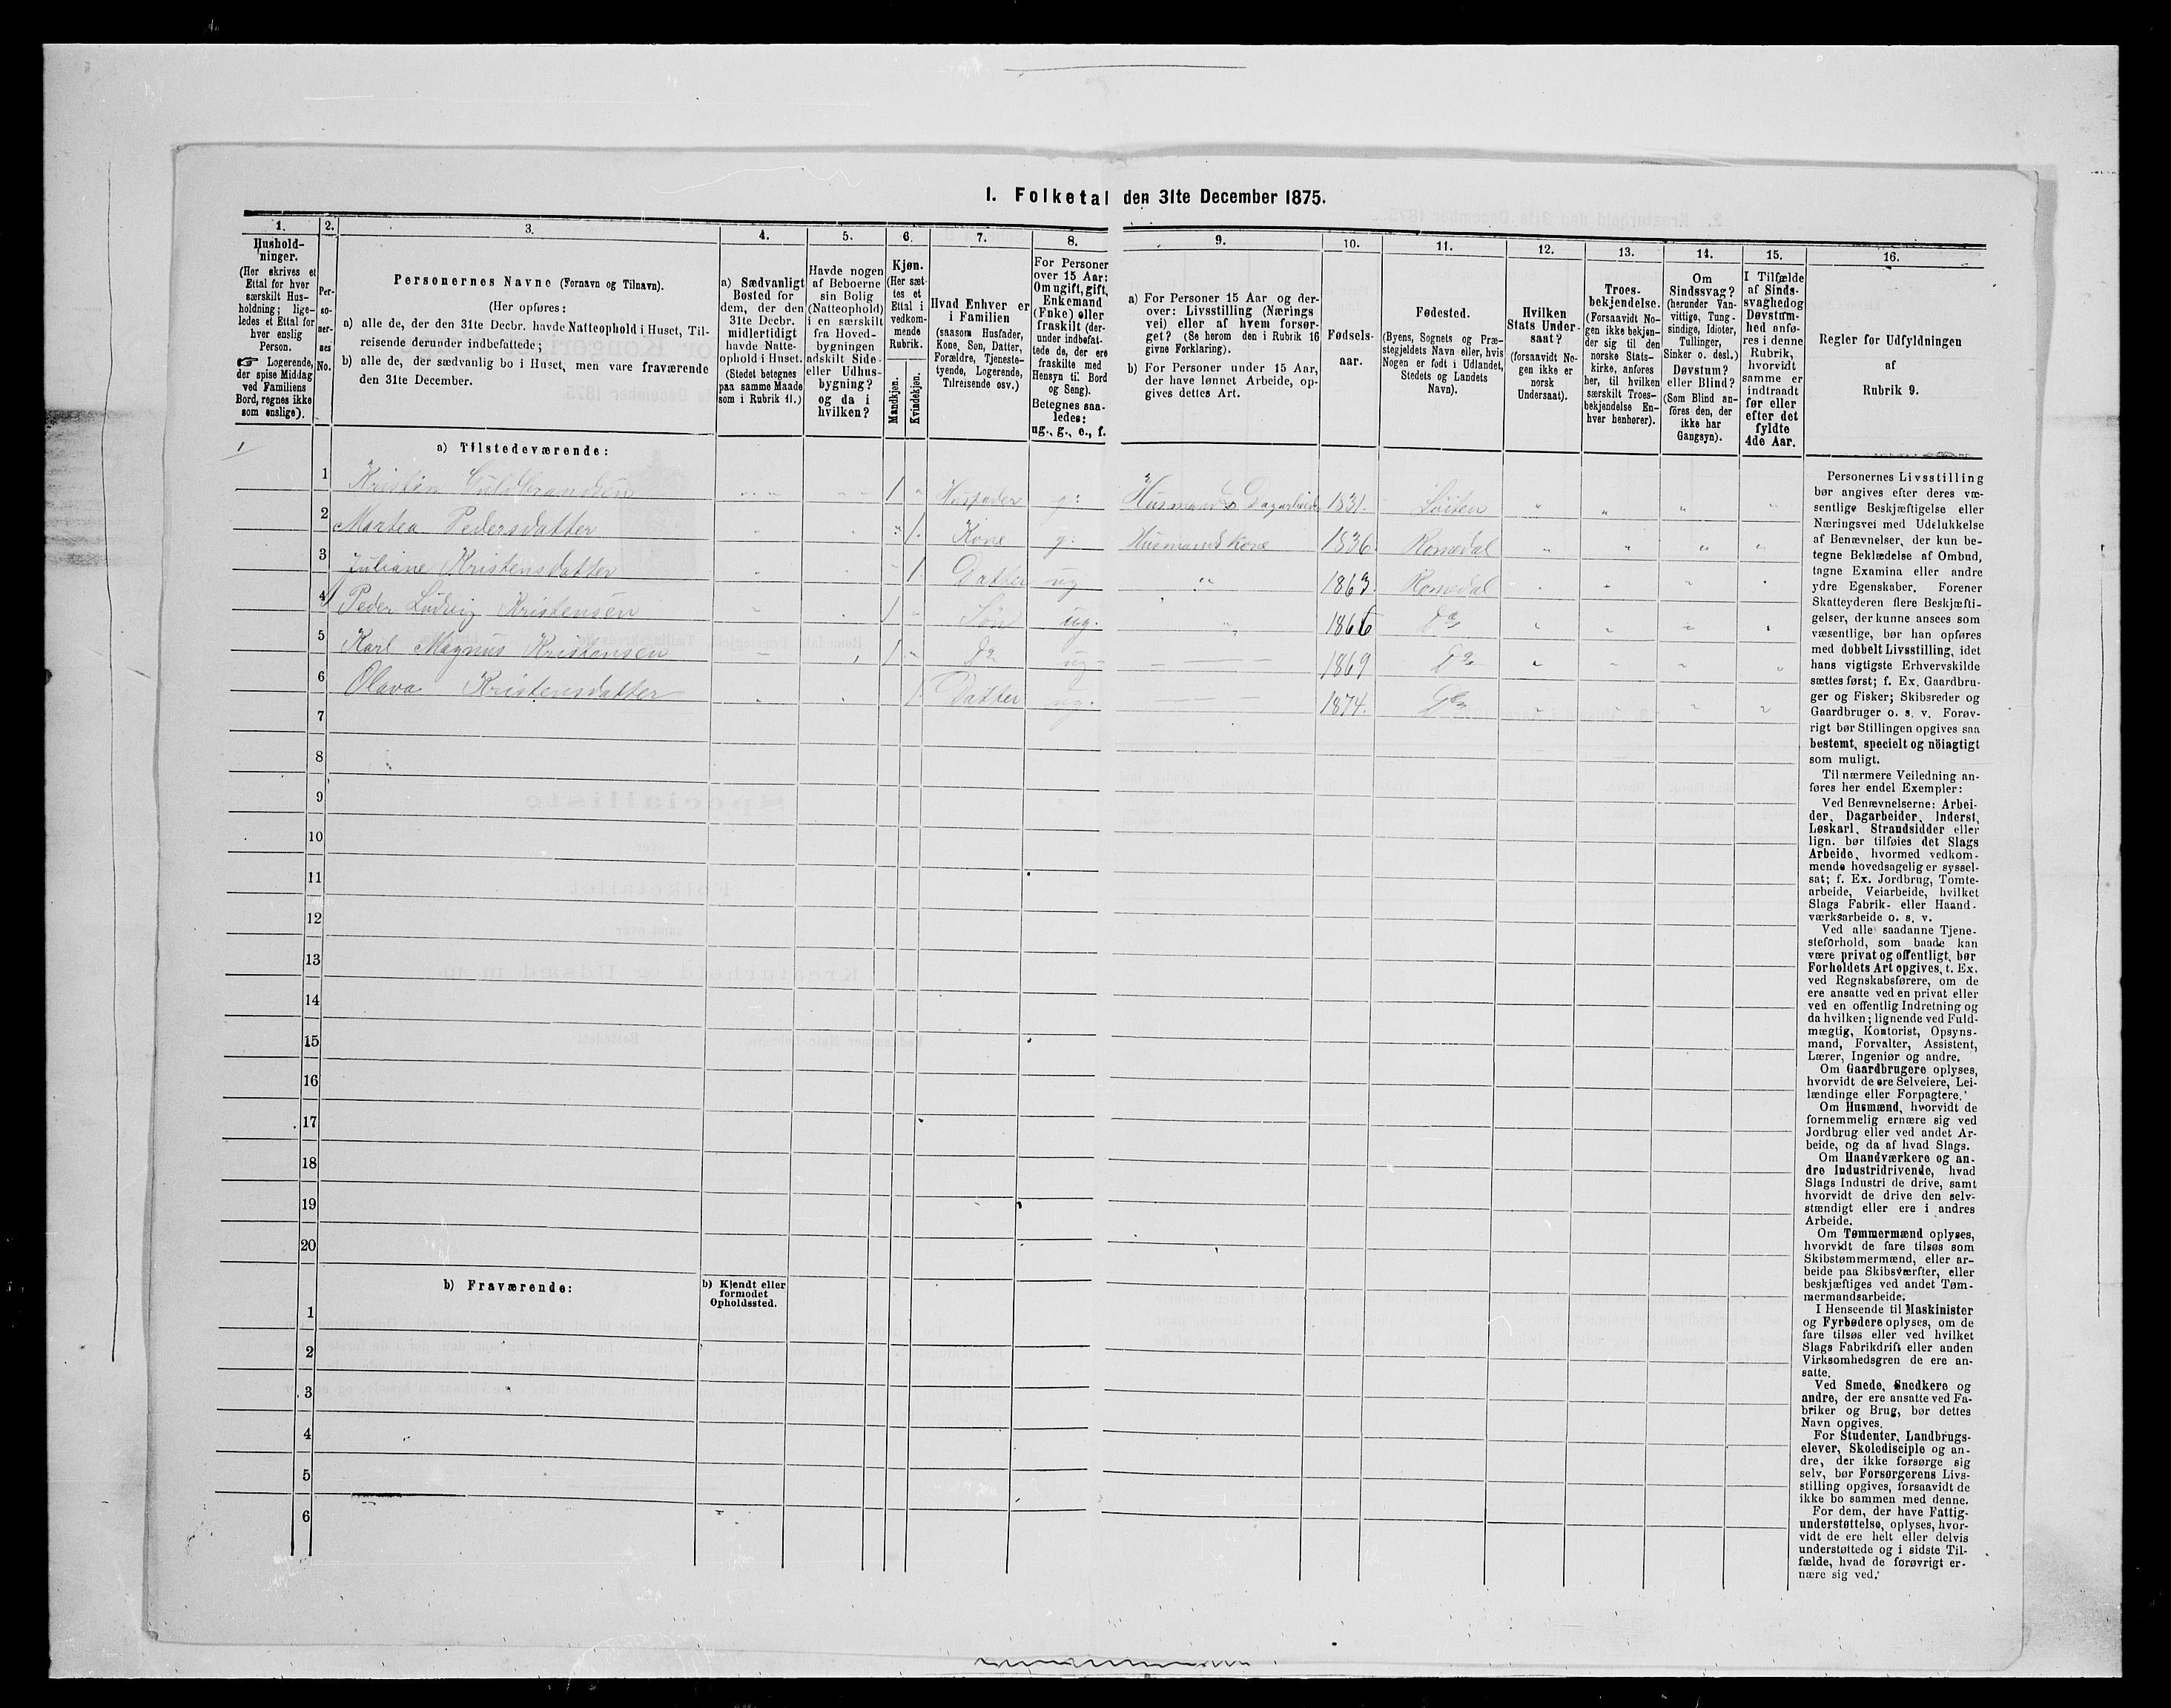 1. Folketal den 31te December 1875.
1.
Hushold-
ninger.
(Her skrives et
Ettal for hver
særskilt Hus-
holdning; lige-
ledes et Ettal for
hver enslig
Person.
☞ Logerende,
der spise Middag
ved Familiens
Bord, regnes ikke
som enslige).
2.
Per-
so-
ner-
nes
No.
3.
Personernes Navne (Fornavn og Tilnavn).
(Her opføres:
a) alle de, der den 31te Decbr. havde Natteophold i Huset, Til-
reisende derunder indbefattede;
b) alle de, der sædvanlig bo i Huset, men vare fraværende
den 31te December.
4.
a) Sædvanligt
Bosted for
dem, der den
31te Decbr.
midlertidigt
havde Natte-
ophold i Huset.
(Stedet betegnes
paa samme Maade
som i Rubrik 11.)
5.
Havde nogen
af Beboerne
sin Bolig
(Natteophold)
i en særskilt
fra Hoved-
bygningen
adskilt Side-
eller Udhus-
bygning?
og da i
hvilken?
6.
Kjøn.
(Her sæt-
tes et
Ettal i
vedkom-
mende
Rubrik.
Mandkjøn.
Kvindekjøn.
7.
Hvad Enhver er
i Familien
(saasom Husfader,
Kone, Søn, Datter,
Forældre, Tjeneste-
tyende, Logerende,
Tilreisende osv.)
8.
For Personer
over 15 Aar:
Om ugift, gift,
Enkemand
(Enke) eller
fraskilt (der-
under indbefat-
tede de, der ere
fraskilte med
Hensyn til Bord
og Seng).
Betegnes saa-
ledes:
ug., g., e., f.
9.
a) For Personer 15 Aar og der-
over: Livsstilling (Nærings
vei) eller af hvem forsør-
get? (Se herom den i Rubrik 16
givne Forklaring).
b) For Personer under 15 Aar,
der have lønnet Arbeide, op-
gives dettes Art.
10.
Fødsels-
aar.
11.
Fødested.
(Byens, Sognets og Præ-
stegjeldets Navn eller, hvis
Nogen er født i Udlandet,
Stedets og Landets
Navn).
12.
Hvilken
Stats Under-
saat?
(forsaavidt No-
gen ikke er
norsk
Undersaat).
13.
Troes-
bekjendelse.
(Forsaavidt No-
gen ikke bekjen-
der sig til den
norske Stats-
kirke, anføres
her, til hvilken
særskilt Troes-
bekjendelse En-
hver henhører).
14.
Om
Sindssvag?
(herunder Van-
vittige, Tung-
sindige, Idioter,
Tullinger,
Sinker o. desl.)
Døvstum?
eller Blind?
(Som Blind an-
føres den, der
ikke har
Gangsyn).
15.
I Tilfælde
af Sinds-
svaghed og
Døvstum-
hed anfø-
res i denne
Rubrik,
hvorvidt
samme er
indtraadt
før eller
efter det
fyldte
4de Aar.
16.
Regler for Udfyldningen
af
Rubrik 9.
1
a) Tilstedeværende:
1 Kristen Guldbrandsen 1 Husfader g: Husmand Dagarbeide 1831. Løiten
2 Martea Pedersdatter 1. Kone g: Husmands Kone 1836. Romedal
3 Juliane Kristensdatter 1. Datter ug 1863. Romedal
4 Peder Ludvig Kristensen 1 Søn ug. 1866 Do
5 Karl Magnus Kristensen 1 Do ug 1869 Do
6 Olava Kristensdatter 1. Datter ug. 1874. Do
7
8
9
10
11
12
13
14
15
16
17
18
19
20
b) Fraværende:
b) Kjendt eller
formodet
Opholdssted.
1
2
3
4
5
6
Personernes Livsstilling
bør angives efter deres væ-
sentlige Beskjæftigelse eller
Næringsvei med Udelukkelse
af Benævnelser, der kun be-
tegne Beklædelse af Ombud,
tagne Examina eller andre
ydre Egenskaber. Forener
Skatteyderen flere Beskjæfti-
gelser, der kunne ansees som
væsentlige, bør han opføres
med dobbelt Livsstilling, idet
hans vigtigste Erhvervskilde
sættes først; f. Ex. Gaardbru-
ger og Fisker; Skibsreder og
Gaardbruger o. s. v. Forøv-
rigt bør Stillingen opgives saa
bestemt, specielt og nöiagtigt
som muligt.
Til nærmere Veiledning an-
føres her endel Exempler:
Ved Benævnelserne: Arbei-
der, Dagarbeider, Inderst,
Løskarl, Strandsidder eller
lign. bør tilføies det Slags
Arbeide, hvormed vedkom-
mende hovedsagelig er syssel-
sat; f. Ex. Jordbrug, Tomte-
arbeide, Veiarbeide, hvilket
Slags Fabrik- eller Haand-
værksarbeide o. s. v.
Ved alle saadanne Tjene-
steforhold, som baade kan
være privat og offentligt, bør
Forholdets Art opgives, t. Ex.
ved Regnskabsførere, om de
ere ansatte ved en privat eller
ved en offentlig Indretning og
da hvilken; lignende ved Fuld-
mægtig, Kontorist, Opsyns-
mand, Forvalter, Assistent,
Lærer, Ingeniør og andre.
Om Gaardbrugere oplyses,
hvorvidt de ere Selveiere, Lei-
lændinge eller Forpagtere.
Om Husmænd, hvorvidt de
fornemmelig ernære sig ved
Jordbrug eller ved andet Ar-
beide, og da af hvad Slags.
Om Haandværkere og an-
dre Industridrivende, hvad
Slags Industri de drive, samt
hvorvidt de drive den selv-
stændigt eller ere i andres
Arbeide.
Om Tømmermænd oplyses,
hvorvidt de fare tilsøs som
Skibstømmermænd, eller ar-
beide paa Skibsværfter, eller
beskjæftiges ved andet Tøm-
mermandsarbeide.
I Henseende til Maskinister
og Fyrbødere oplyses, om de
fare tilsøs eller ved hvilket
Slags Fabrikdrift eller anden
Virksomhedsgren de ere an-
satte.
Ved Smede, Snedkere og
andre, der ere ansatte ved Fa-
briker og Brug, bør dettes
Navn opgives.
For Studenter, Landbrugs-
elever, Skoledisciple og an-
dre, der ikke forsørge sig
selv, bør Forsørgerens Livs-
stilling opgives, forsaavidt de
ikke bo sammen med denne.
For dem, der have Fattig-
understøttelse, oplyses, hvor-
vidt de ere helt eller delvis
understøttede og i sidste Til-
fælde, hvad de forøvrigt er-
nære sig ved.